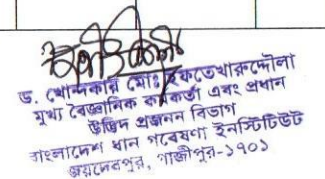 ড. খোন্দকার মোঃ ইফতেখারুদ্দৌলা
মুখ্য বৈজ্ঞানিক কর্মকর্তা এবং প্রধান
উদ্ভিদ প্রজনন বিভাগ
বাংলাদেশ ধান গবেষণা ইনস্টিটিউট
জয়দেবপুর, গাজীপুর-১৭০১